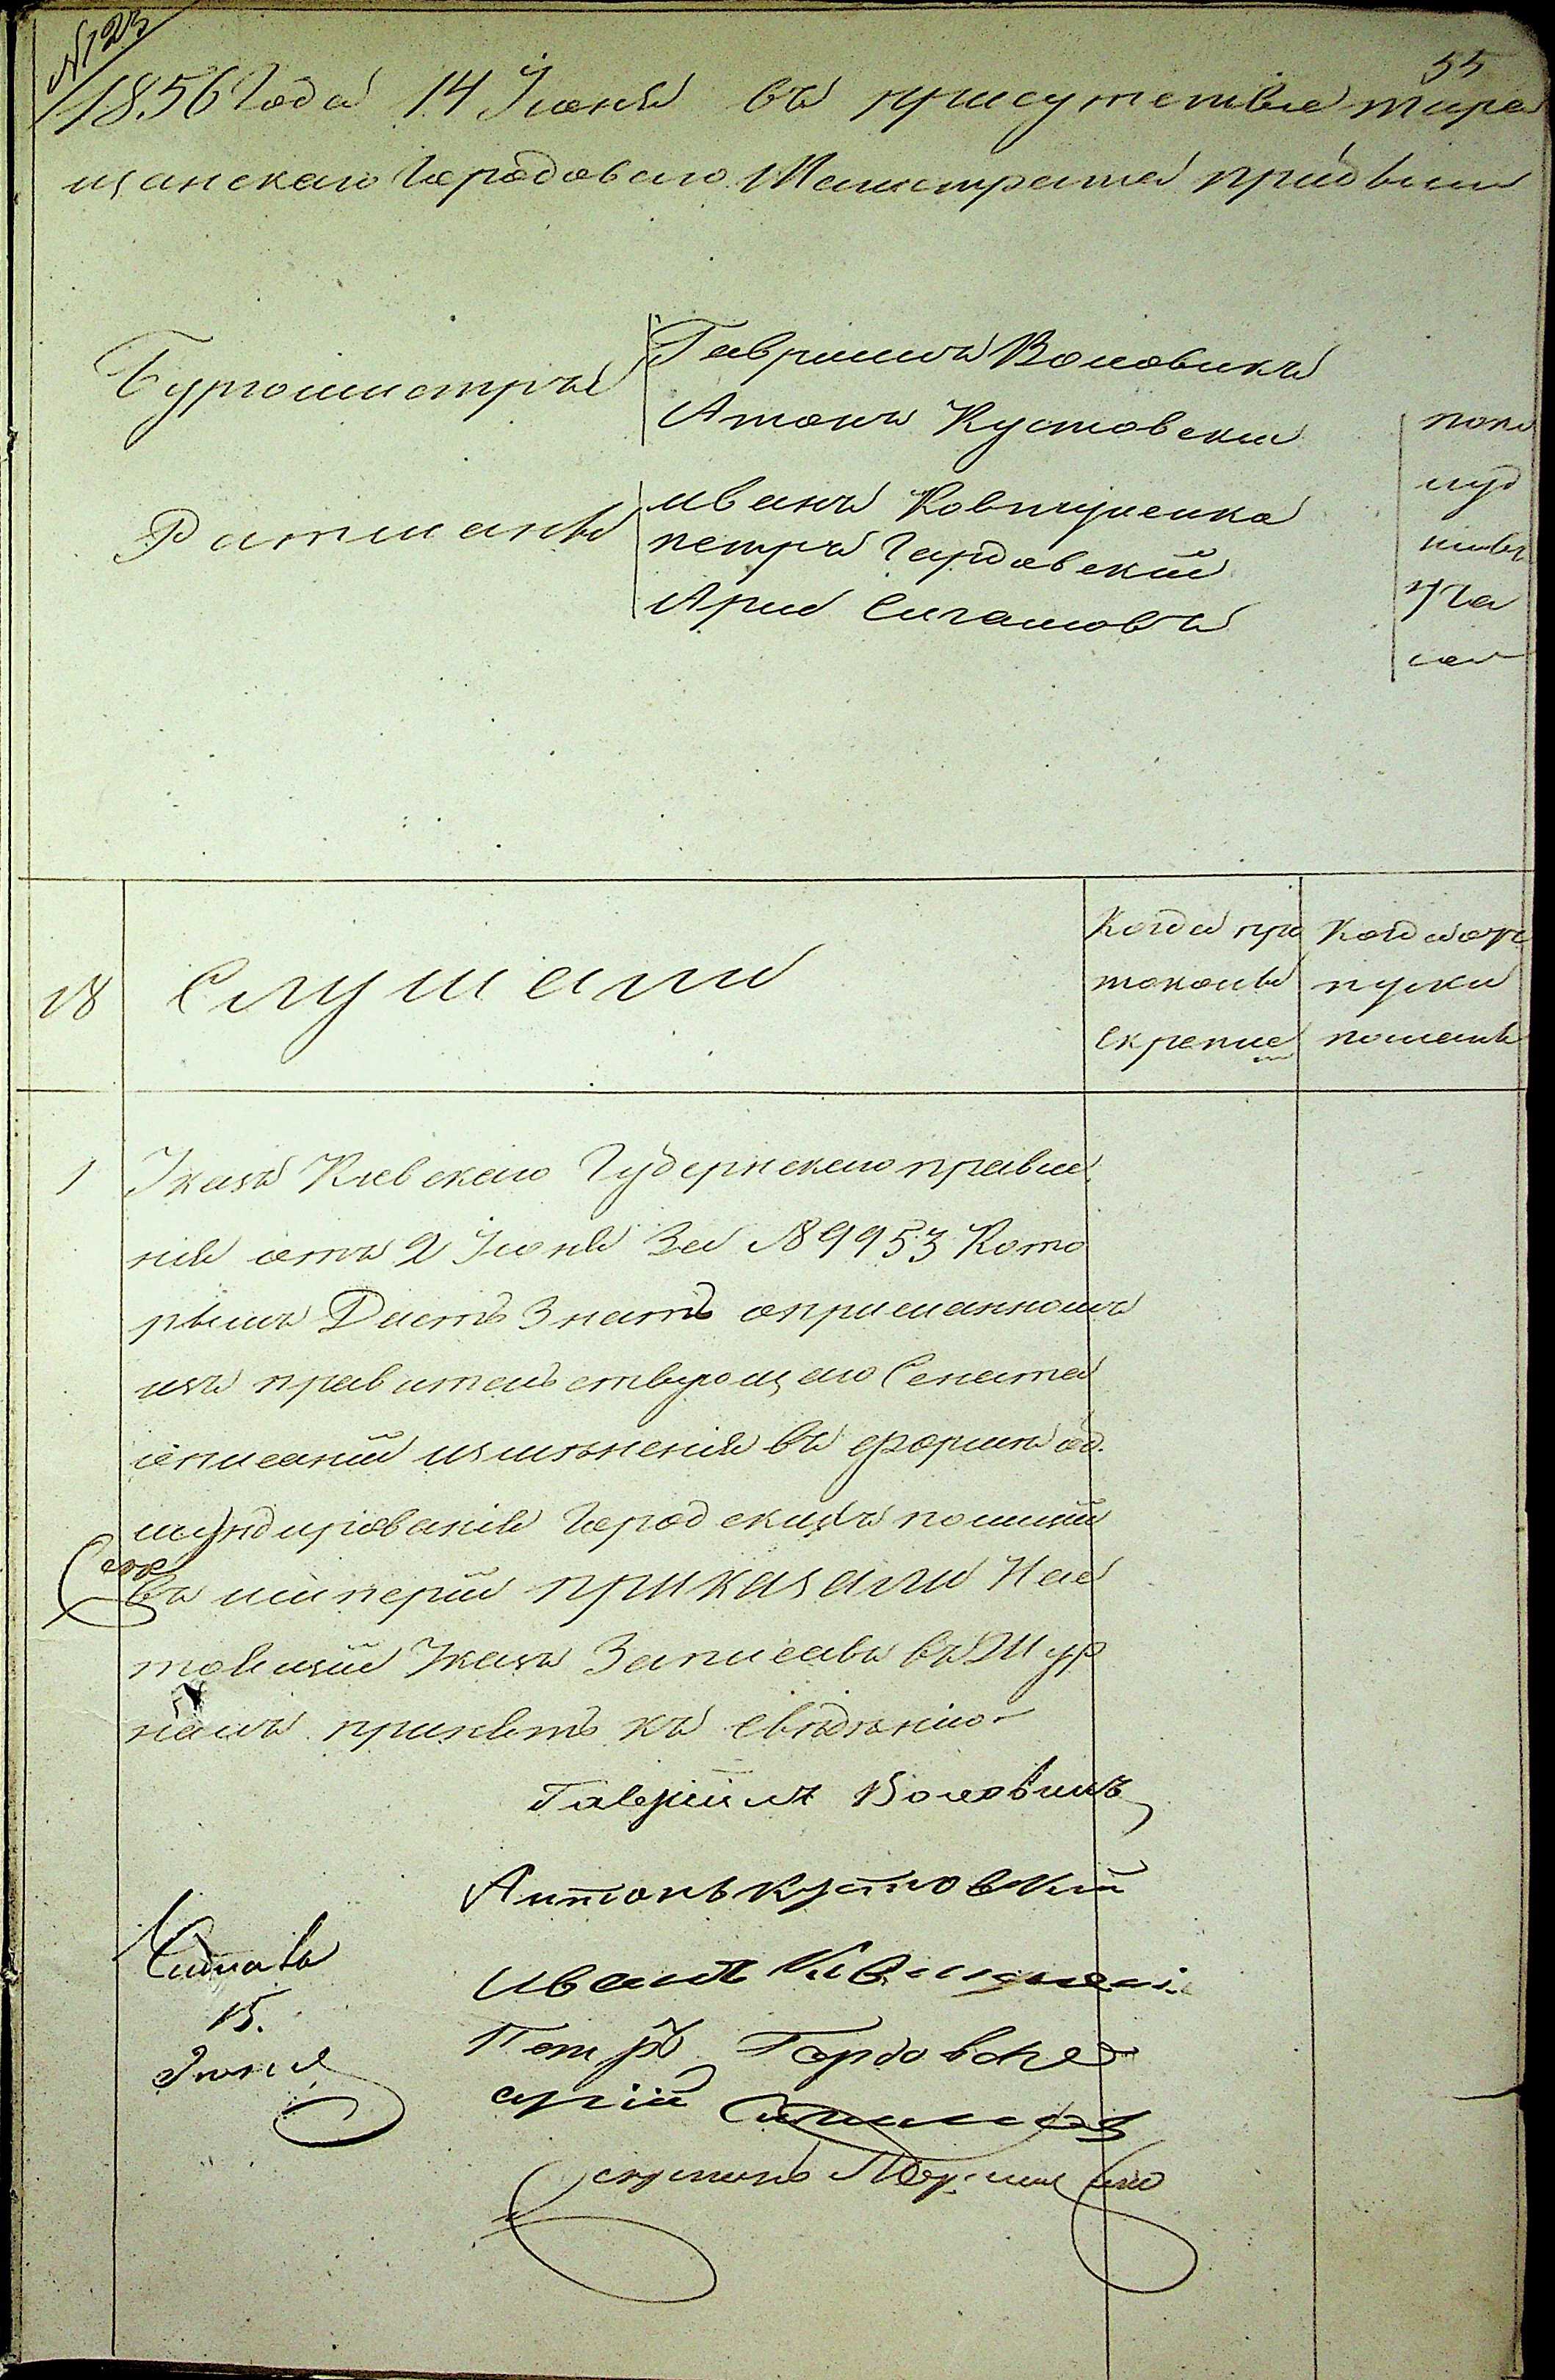 №123
55
1856 Года 14 Июня въ присутствіе тара
щанскаго Городоваго Магистрата прибыли
Бургомистры
Гавриилъ Воловикъ
Антонъ Кустовски
Ратманы
иванъ Ковтуненко
петръ Гардовский
Арий Сигаловъ
попо
луд
нивъ
7 ча
№
Слушали
Когда про
токолы
скрепле
Когда от
пуски
помеще
1
Указъ Киевскаго Губернскаго правле
нія отъ 2 Июня За № 9953 Кото
рымъ Даетъ Знать о присланномъ
изъ правительствующаго Сената
описаній измѣненія въ формѣ об
мундированія Городскихъ полицій
въ имперіи приказали Нас
тоящій Указъ Записавъ въ Жур
налъ принять къ Свѣдѣнію
Гавриилъ Воловикъ
Антонъ Кустовский
Иванъ
Петръ Гардовски
арій
Читалъ
15.
Июня